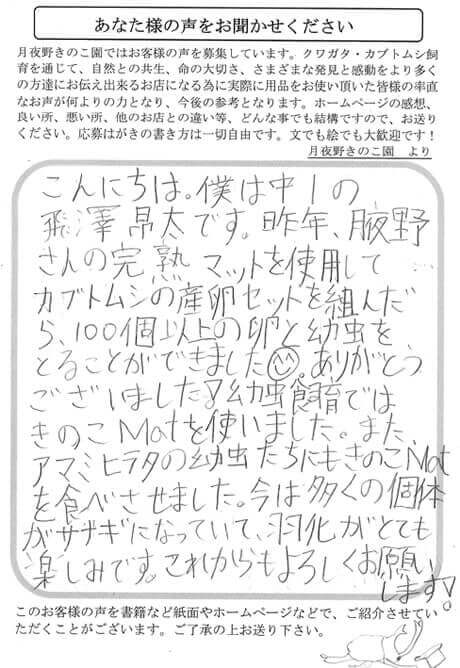 あなた様の声をお聞かせください
月夜野きのこ園ではお客様の声を募集しています。クワガタ・カブトムシ飼
育を通じて、自然との共生、命の大切さ、さまざまな発見と感動をより多く
の方達にお伝え出来るお店になる為に実際に用品をお使い頂いた皆様の率直
なお声が何よりの力となり、今後の参考となります。ホームページの感想、
良い所、悪い所、他のお店との違い等、どんな事でも結構ですので、お送り
ください。応募はがきの書き方は一切自由です。文でも絵でも大歓迎です！
月夜野きのこ園 より
こんにちは。僕は中1の
飛澤昂太です。昨年、月夜野
さんの完熟マットを使用して
カブトムシの産卵セットを組んだ
ら、100個以上の卵と幼虫を
とることができました。ありがとう
ございました。幼虫飼育では
きのこMatを使いました。また、
アマミヒラタの幼虫たちにもきのこMat
を食べさせました。今は多くの個体
がサナギになっていて、羽化がとても
楽しみです。これからもよろしくお願い
します!
このお客様の声を書籍など紙面やホームページなどで、ご紹介させてい
ただくことがございます。ご了承の上お送り下さい。